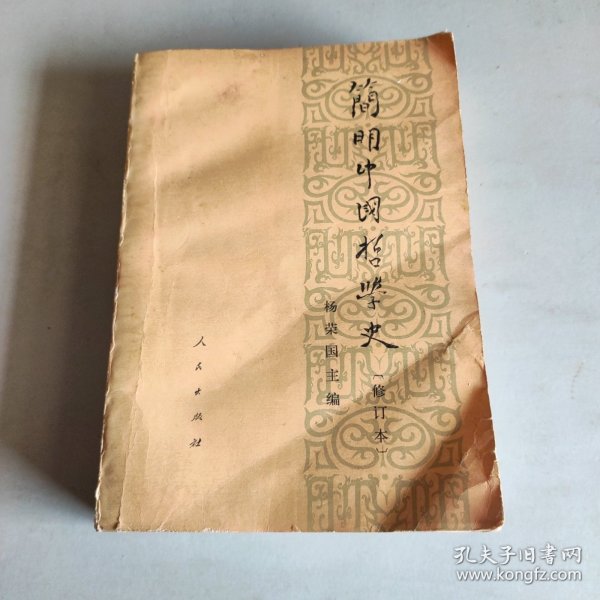 簡明中国哲學史
〔修订本〕
杨荣国主编
人民出版社
孔夫子旧书网
www.kongfz.com